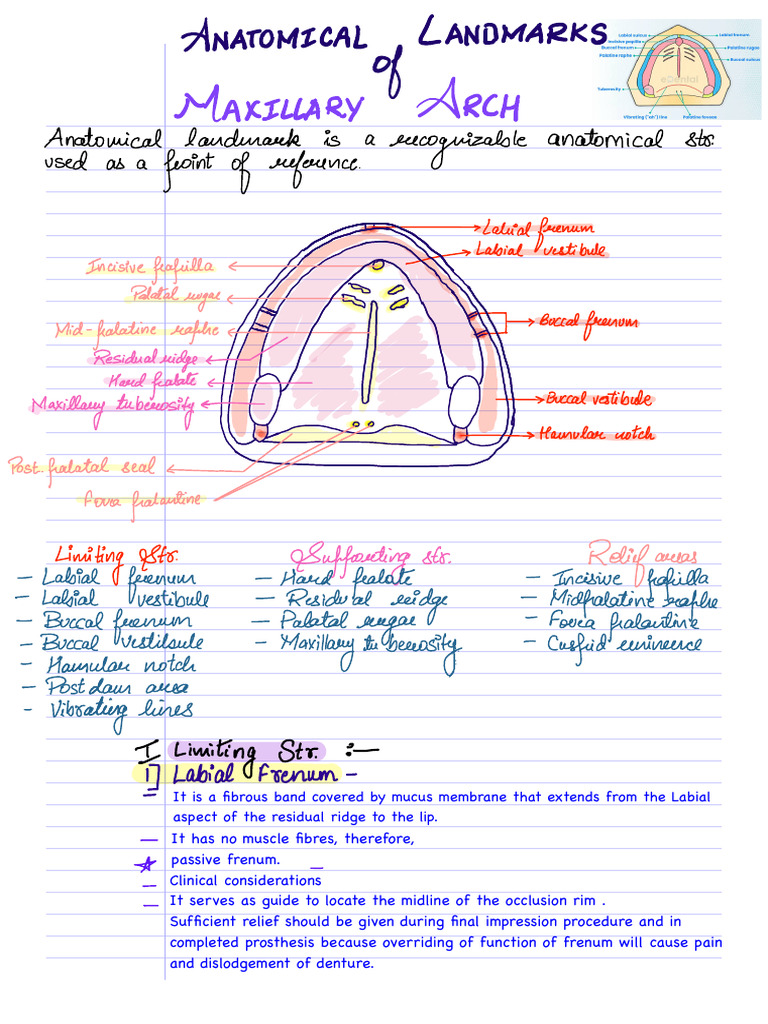 ANATOMICAL LANDMARKS
of
MAXILLARY ARCH
Labial sulcus
Labial frenum
Incisive papilla
Buccal frenum
Palatine rugae
Palatine raphe
Buccal sulcus
eDental
Tuberosity
Vibrating ("ah") line
Palatine foveae
Anatomical landmark is a recognizable anatomical str.
used as a point of reference.
Labial frenum
Labial vestibule
Incisive papilla
Palatal rugae
Mid-palatine raphe
Buccal frenum
Residual ridge
Hard palate
Maxillary tuberosity
Buccal vestibule
Hamular notch
Post palatal seal
Fovea palantine
Limiting Str. Supporting str. Relief areas
— Labial frenum — Hard palate — Incisive papilla
— Labial vestibule — Residual ridge — Midpalatine raphe
— Buccal frenum — Palatal rugae — Fovea palantine
— Buccal vestibule — Maxillary tuberosity — Cuspid eminence
— Hamular notch
— Post dam area
— Vibrating lines
I Limiting Str. :—
1] Labial Frenum —
— It is a fibrous band covered by mucus membrane that extends from the Labial
aspect of the residual ridge to the lip.
— It has no muscle fibres, therefore,
passive frenum. —
— Clinical considerations
— It serves as guide to locate the midline of the occlusion rim .
Sufficient relief should be given during final impression procedure and in
completed prosthesis because overriding of function of frenum will cause pain
and dislodgement of denture.